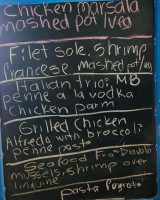 Chicken marsala
mashed pot / veg
Filet sole, shrimp
francese mashed pot / veg
Italian trio: MB
penne a la vodka
chicken parm
Grilled Chicken
Alfredo with broccoli
penne pasta
Seafood Fra-Diavlo
mussels, shrimp over
linguine
pasta